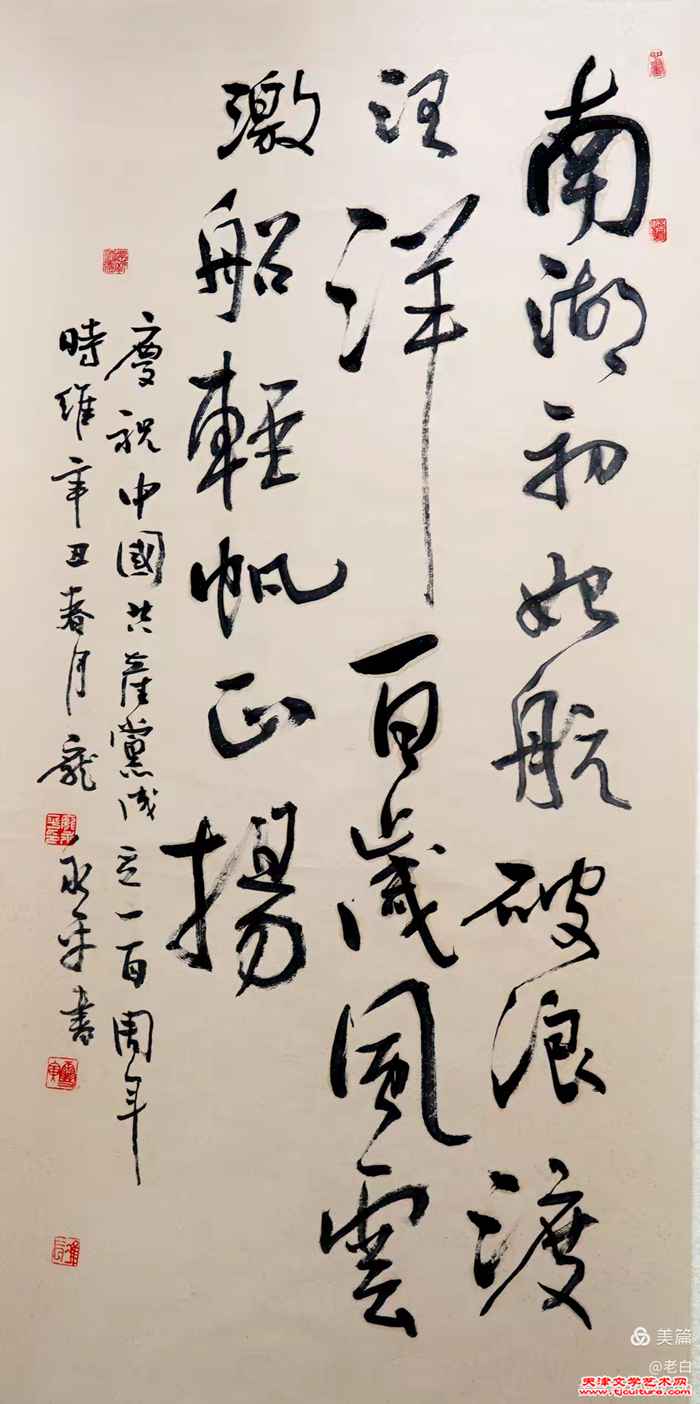 南湖初始航破浪渡
汪洋百歲風雲
激船輕帆正揚
慶祝中國共產黨成立一百周年
時維辛丑春月龍永平書
美篇
@老白
天津文学艺术网
www.tjculture.com